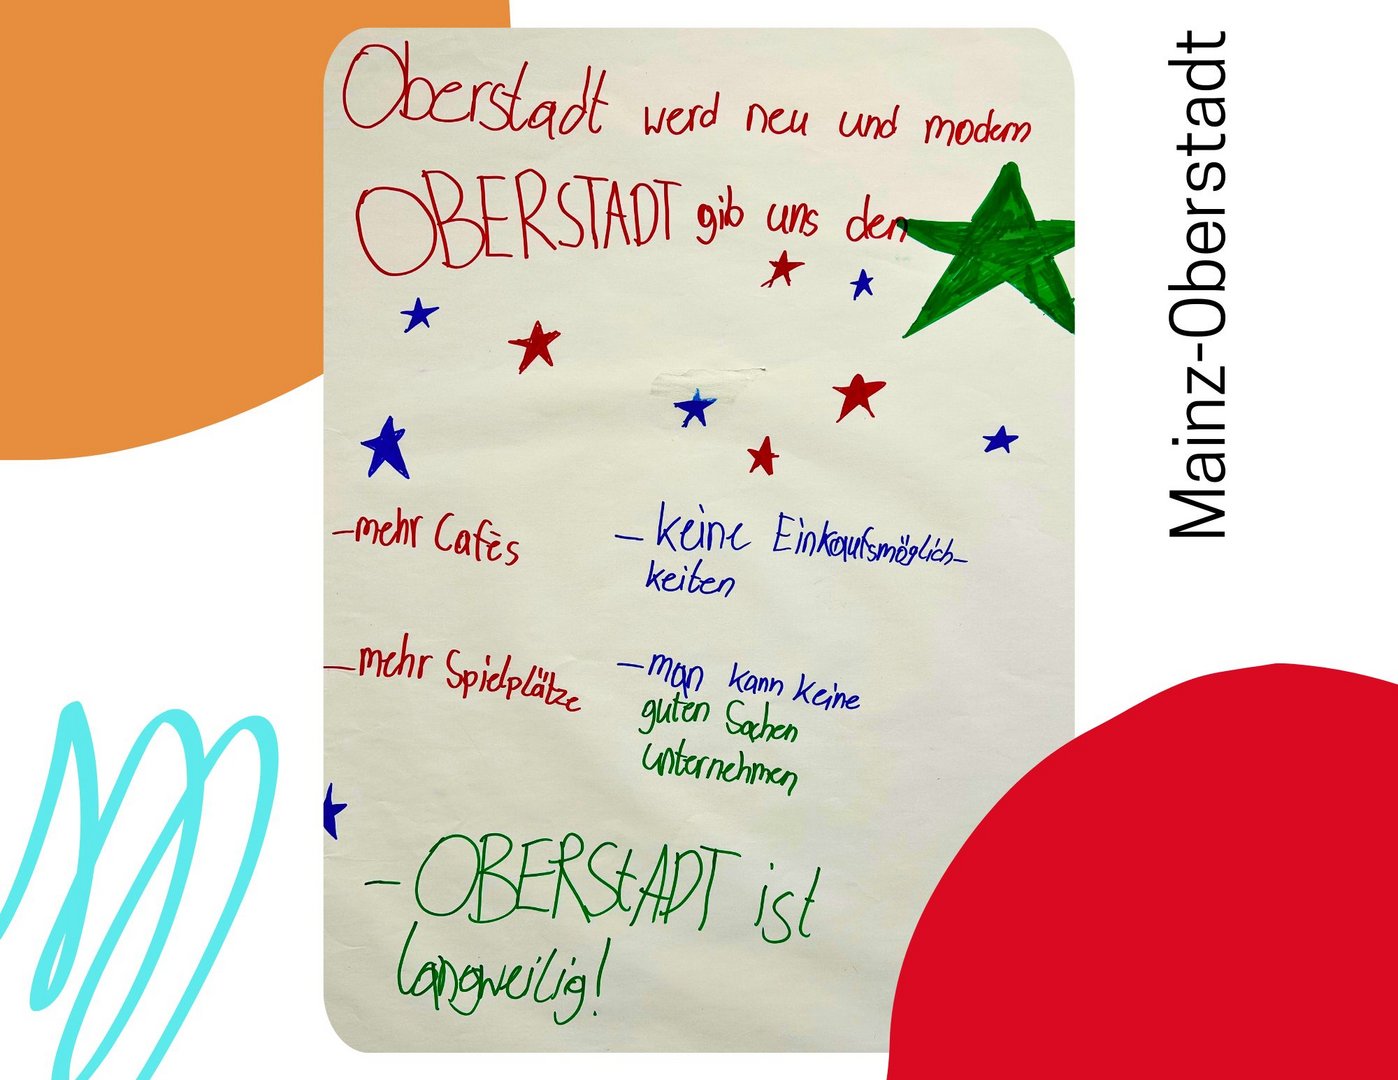 Oberstadt werd neu und modern
OBERSTADT gib uns den
-mehr Cafès
- keine Einkaufsmöglich-
keiten
-mehr Spielplätze
-man kann keine
guten Sachen
unternehmen
- OBERStADT ist
langweilig!
Mainz-Oberstadt